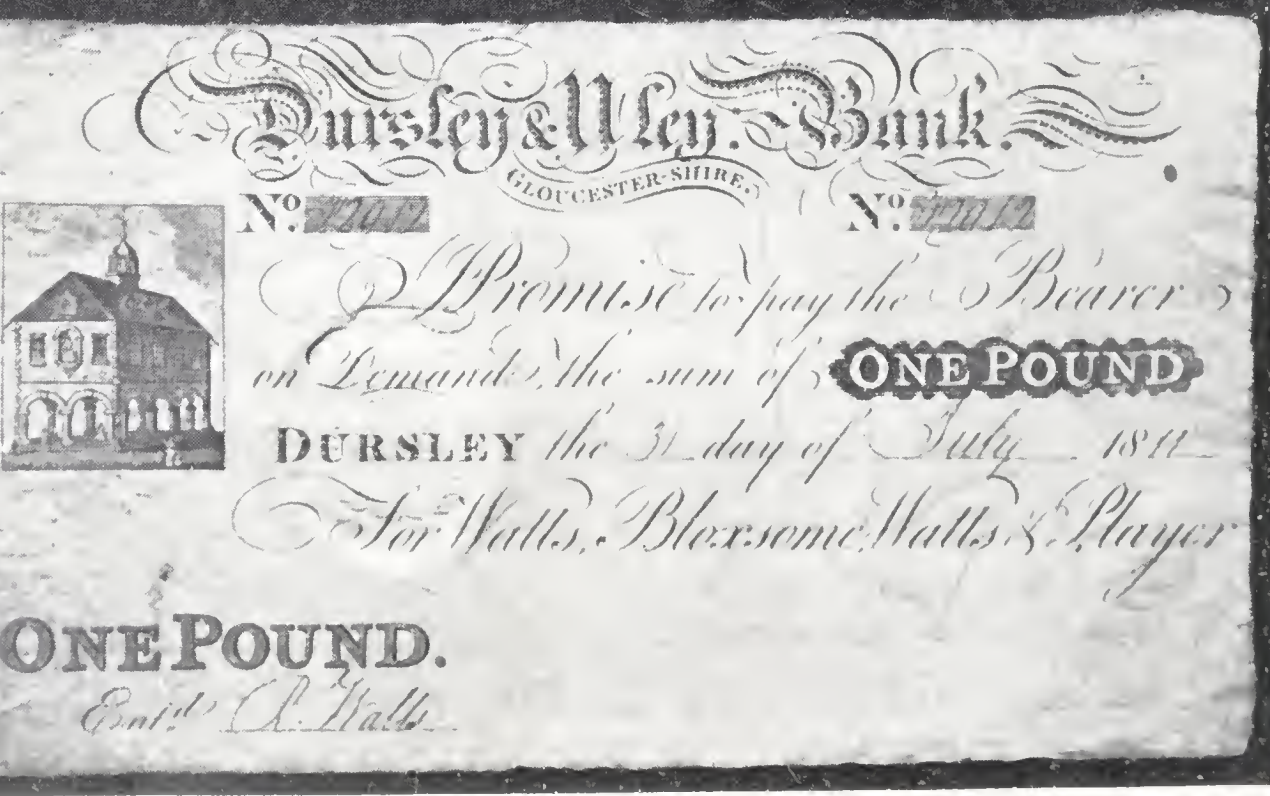 Dursley & Uley Bank.
GLOUCESTER-SHIRE.
No. No.
I Promise to pay the Bearer
on Demand the sum of ONE POUND
DURSLEY the 31 day of July 1811
For Watts, Bloxsome, Watts & Player
ONE POUND.
Entd. Watts